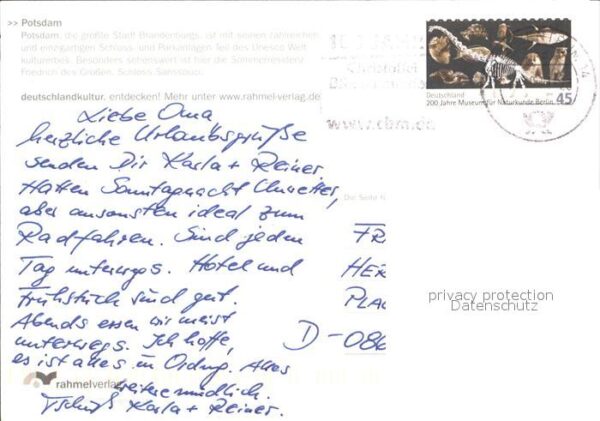 >> Potsdam
Potsdam, die größte Stadt Brandenburgs, ist mit seinen zahlreichen
und einzigartigen Schloss- und Parkanlagen Teil des Unesco Welt
kulturerbes. Besonders sehenswert ist hier die Sommerresidenz
Friedrich des Großen, Schloss Sanssouci.
deutschlandkultur. entdecken! Mehr unter www.rahmel-verlag.de
Deutschland
200 Jahre Museum für Naturkunde Berlin 45
www.cbm.de
Liebe Oma
herzliche Urlaubsgrüße
senden Dir Karla + Reiner.
Hatten Sonntagnacht Unwetter,
aber ansonsten ideal zum
Radfahren. Sind jeden
Tag unterwegs. Hotel und
Frühstück sind gut.
Abends essen wir meist
unterwegs. Ich hoffe,
es ist alles in Ordnung. Alles
weitere mündlich.
Tschüß Karla + Reiner.
Die Seite
FR
HER
PLA
D-086
privacy protection
Datenschutz
rahmelverlag